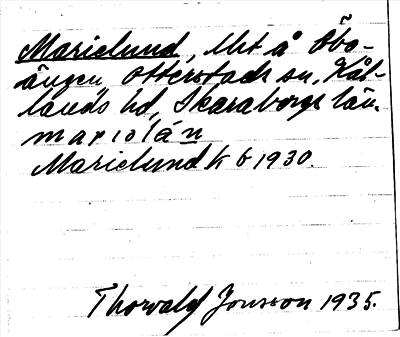 Marielund, lht å Åbo-
ängen, Otterstads sn, Kål-
lands hd, Skaraborgs län.
Marielund k b 1930.
Thorvald Jonsson 1935.